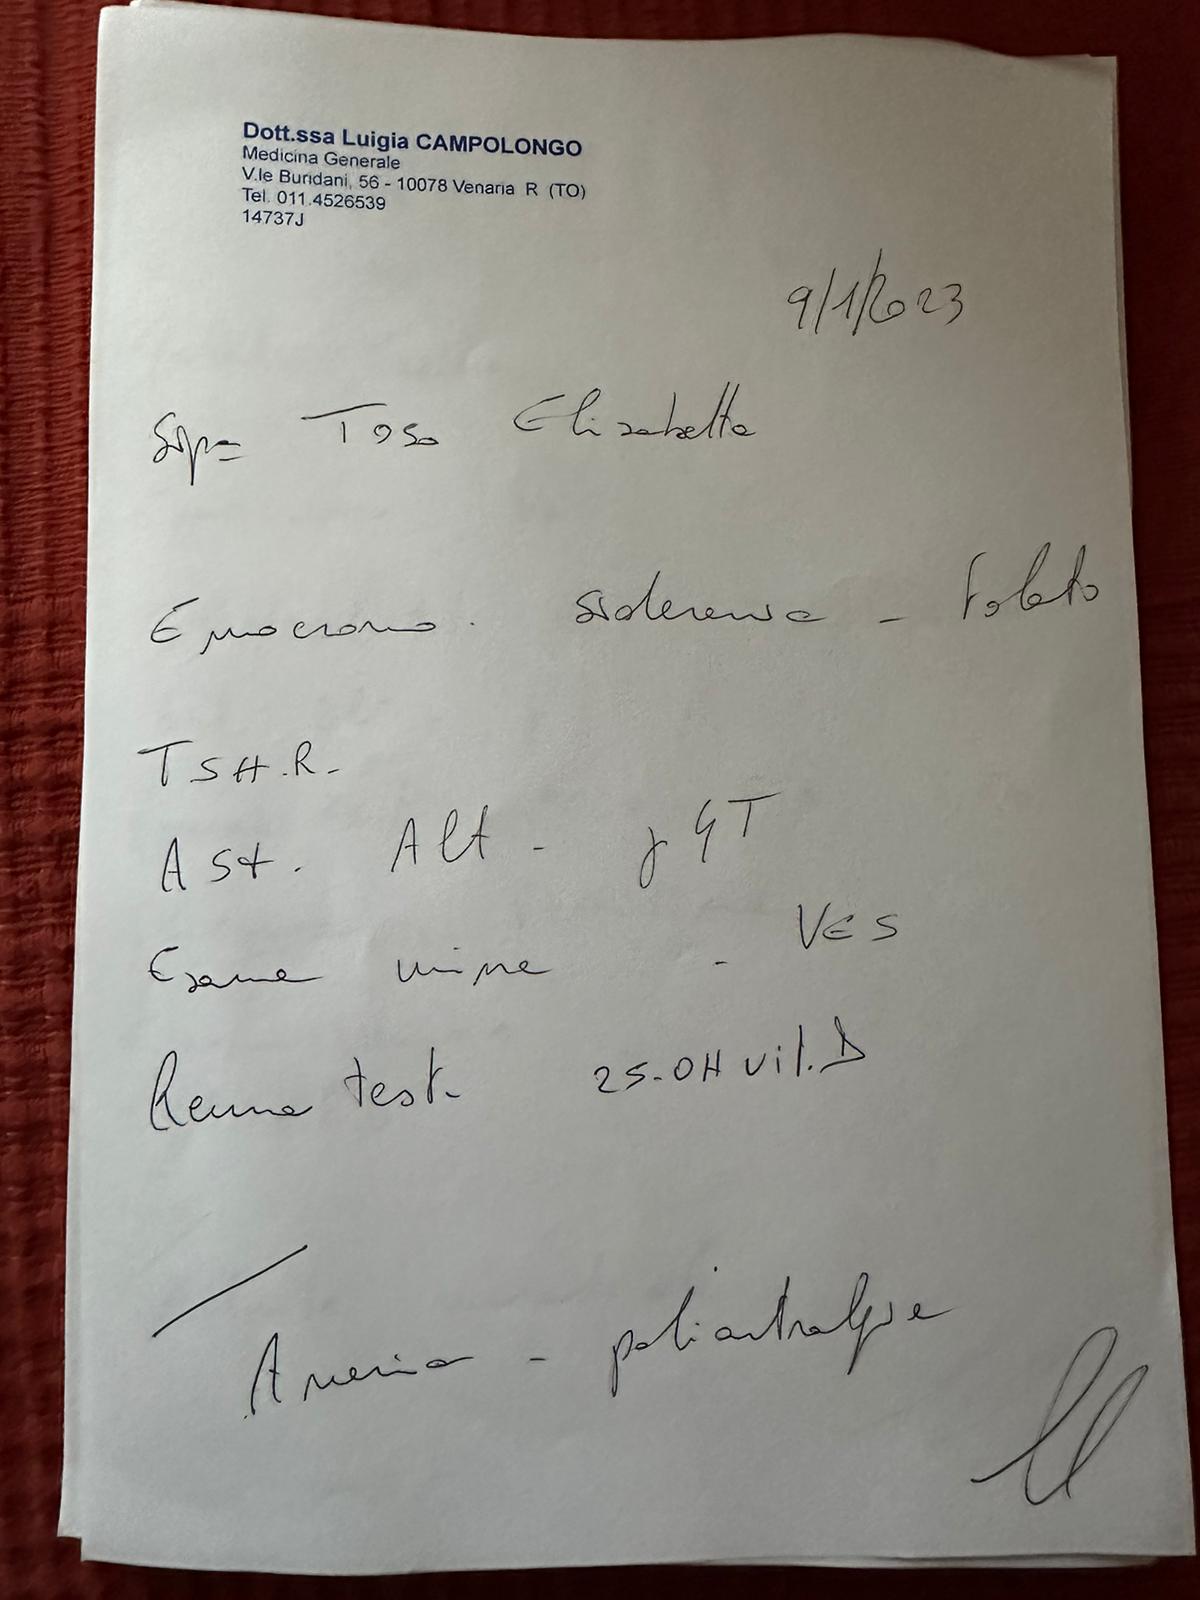 Dott.ssa Luigia CAMPOLONGO
Medicina Generale
V.le Buridani, 56 - 10078 Venaria R (TO)
Tel. 011.4526539
14737J
9/1/2023
Sig.ra Toso Elisabetta
Emocromo. sideremia - Folato
TSH.R.
ASt. Alt - γGT
Esame urine - VES
Reuma test. 25-OH vit.D
Anemia - poliartralgie